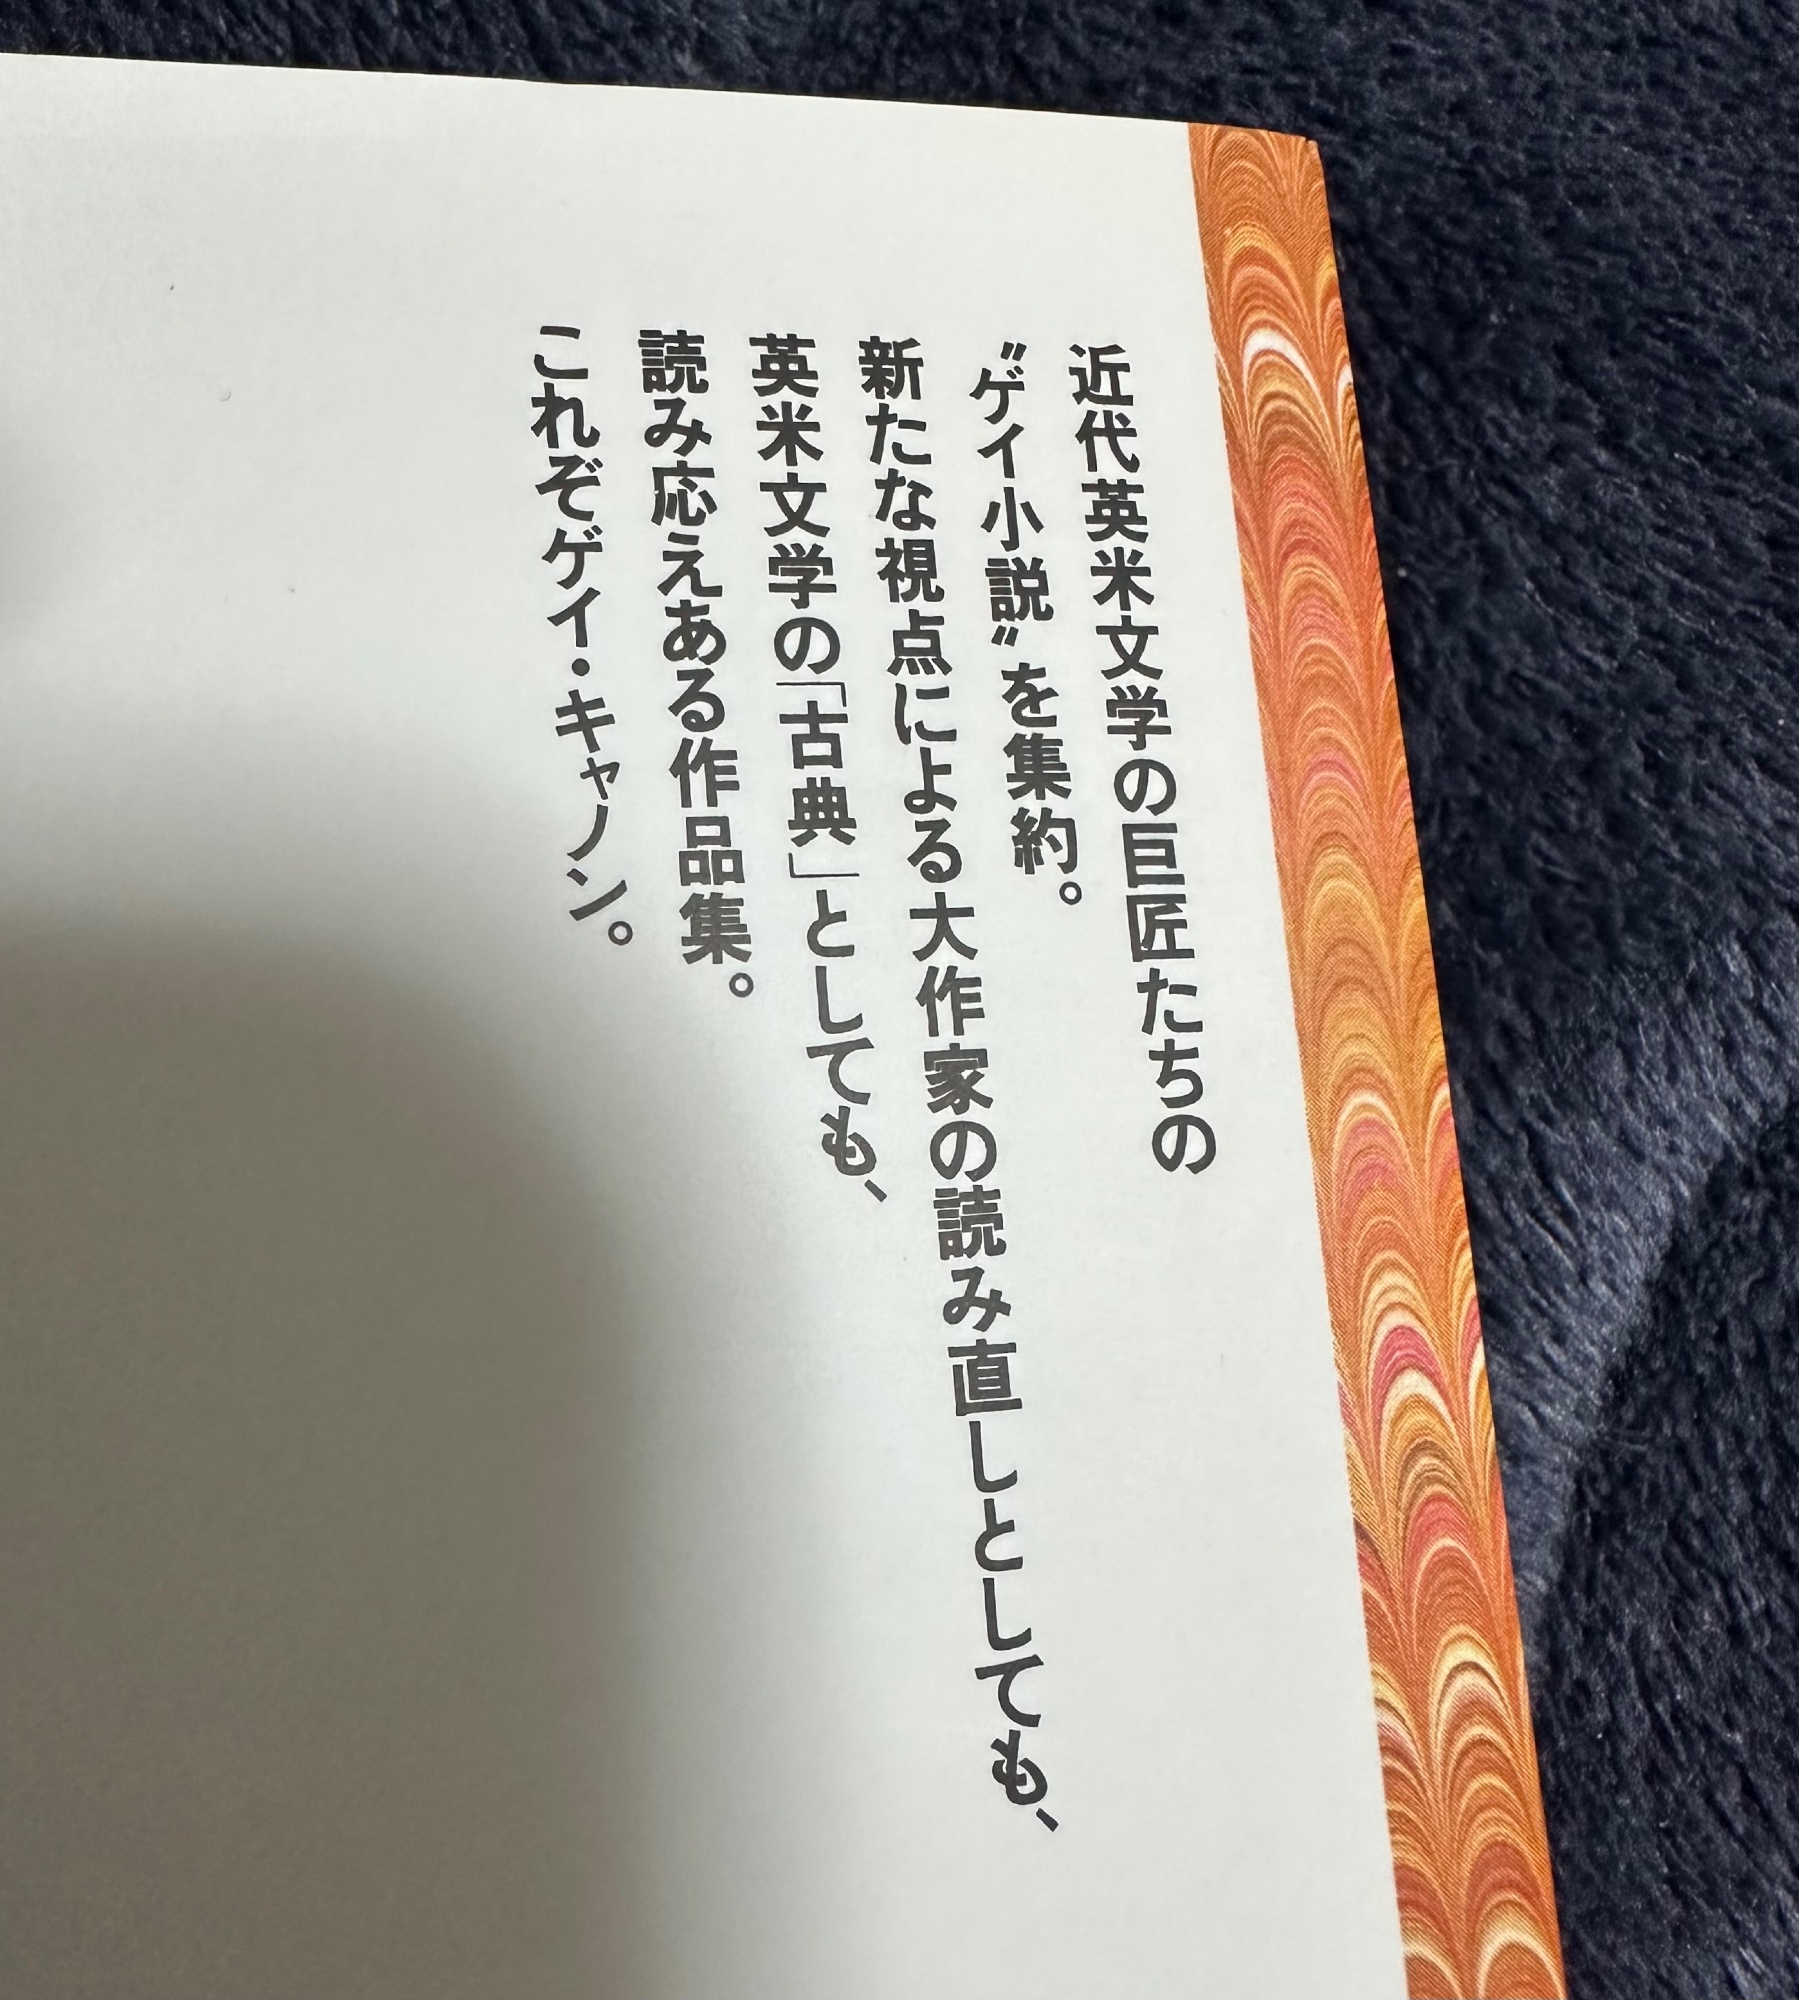 近代英米文学の巨匠たちの
〝ゲイ小説〟を集約。
新たな視点による大作家の読み直しとしても、
英米文学の「古典」としても、
読み応えある作品集。
これぞゲイ・キャノン。